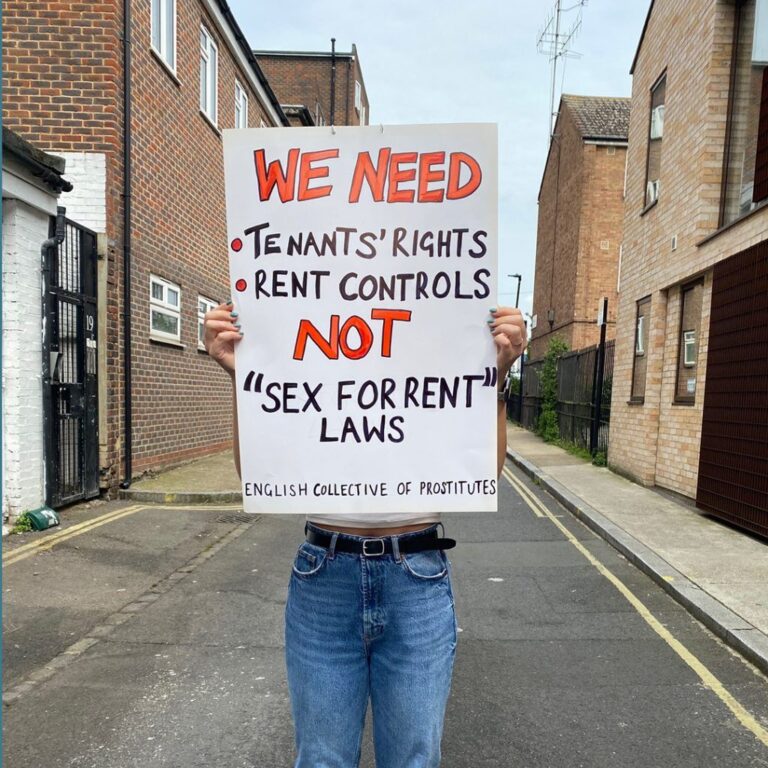 WE NEED
• TENANTS' RIGHTS
• RENT CONTROLS
NOT
"SEX FOR RENT"
LAWS
ENGLISH COLLECTIVE OF PROSTITUTES
19